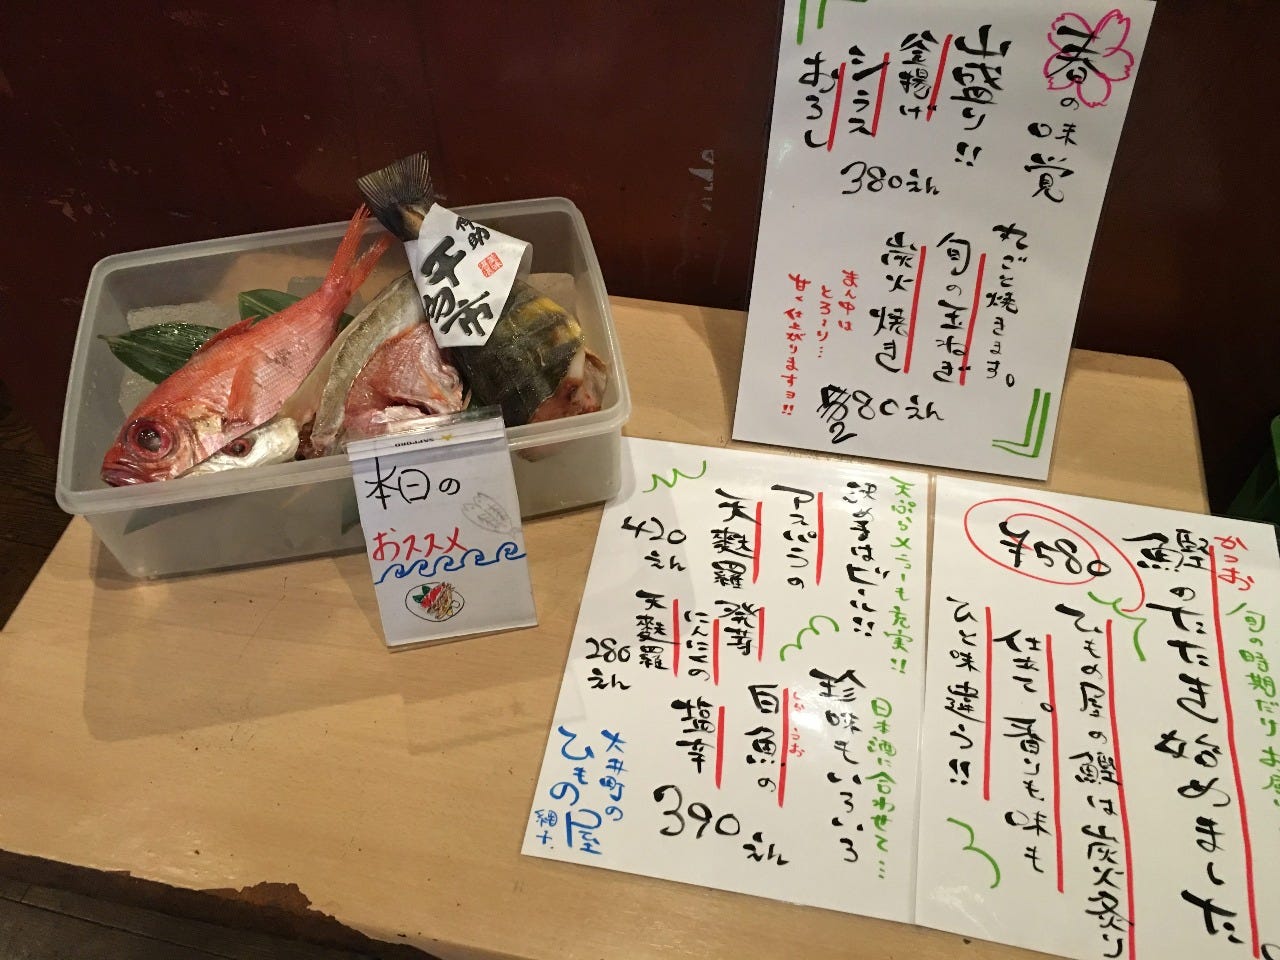 春の味覚
山盛り!!
釜揚げ
シラス
おろし
380えん
丸ごと焼きます。
旬の玉ねぎ
炭火焼き
280えん
まん中は
とろ〜り…
甘く仕上がりますョ!!
SAPPORO
本日の
おススメ
天ぷらメニューも充実!!
決め手はビール!!
アスパラの
天麩羅
420
えん
発芽
にんにくの
天麩羅
280
えん
日本酒に合わせて…
珍味もいろいろ
しらうお
白魚の
塩辛
390えん
大井町の
ひもの屋
かつお
旬の時期だけ
鰹のたたき始めました。
¥580
ひもの屋の鰹は炭火炙り
仕立て。香りも味も
ひと味違う!!